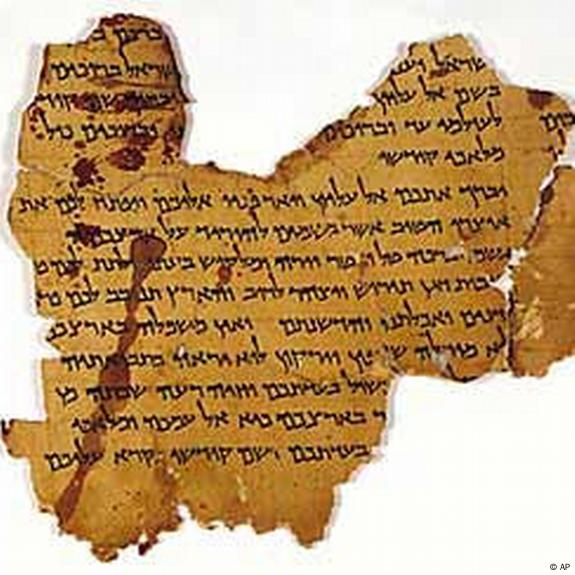 ברכם ב
ישראל ברוכים ישראל ויענ
שם קוד בשם אל עליון
וברוכים כול לעולמי עד וברוכים
מלאכי קודשו
יברך אתכם אל עליון ויאר פניו אליכם ויפתח לכם את
אוצרו הטוב אשר בשמים להוריד על ארצכם
גשמי ברכה טל ומטר יורה ומלקוש בעתו ולתת לכם פ
נובות דגן תירוש ויצהר לרוב והארץ תנובב לכם פר
דנים ואכלתם והדשנתם ואין משכלה בארצכם
א מוחלה שדפון וירקון לוא יראה בתבואתיה
שול בעדתכם וחיה רעה שבתה מן
ר בארצכם כיא אל עמכם ומלאכי
בעדתכם ושם קודשו נקרא עליכם
© AP